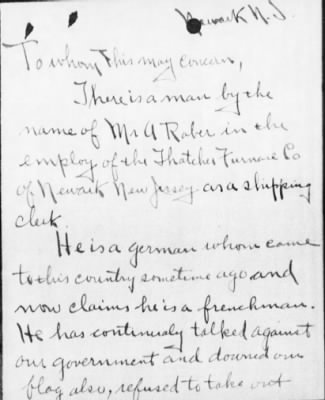 Newark N.J.
To whom this may concan,
There is a man by the
name of Mr A Raber in the
employ of the Thatcher Furnace Co
of Newark New Jersey as a shipping
clerk.
He is a german whom came
to this country sometime ago and
now claims he is a frenchman.
He has continualy talked against
our government and downed our
flag also, refused to take out